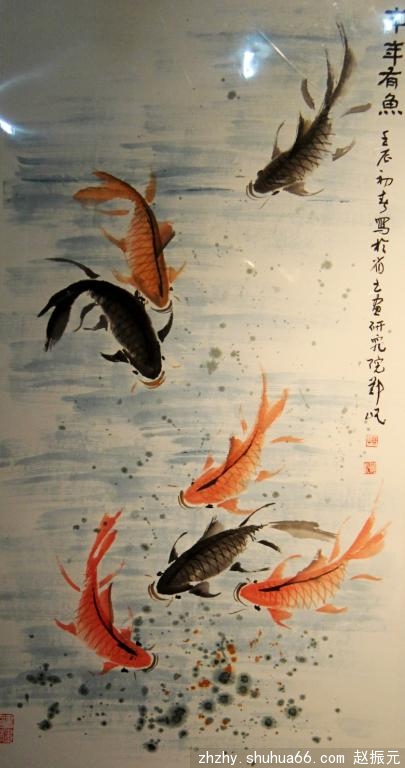 年年有魚
壬辰初春寫於省书畫研究院
zhzhy.shuhua66.com 赵振元